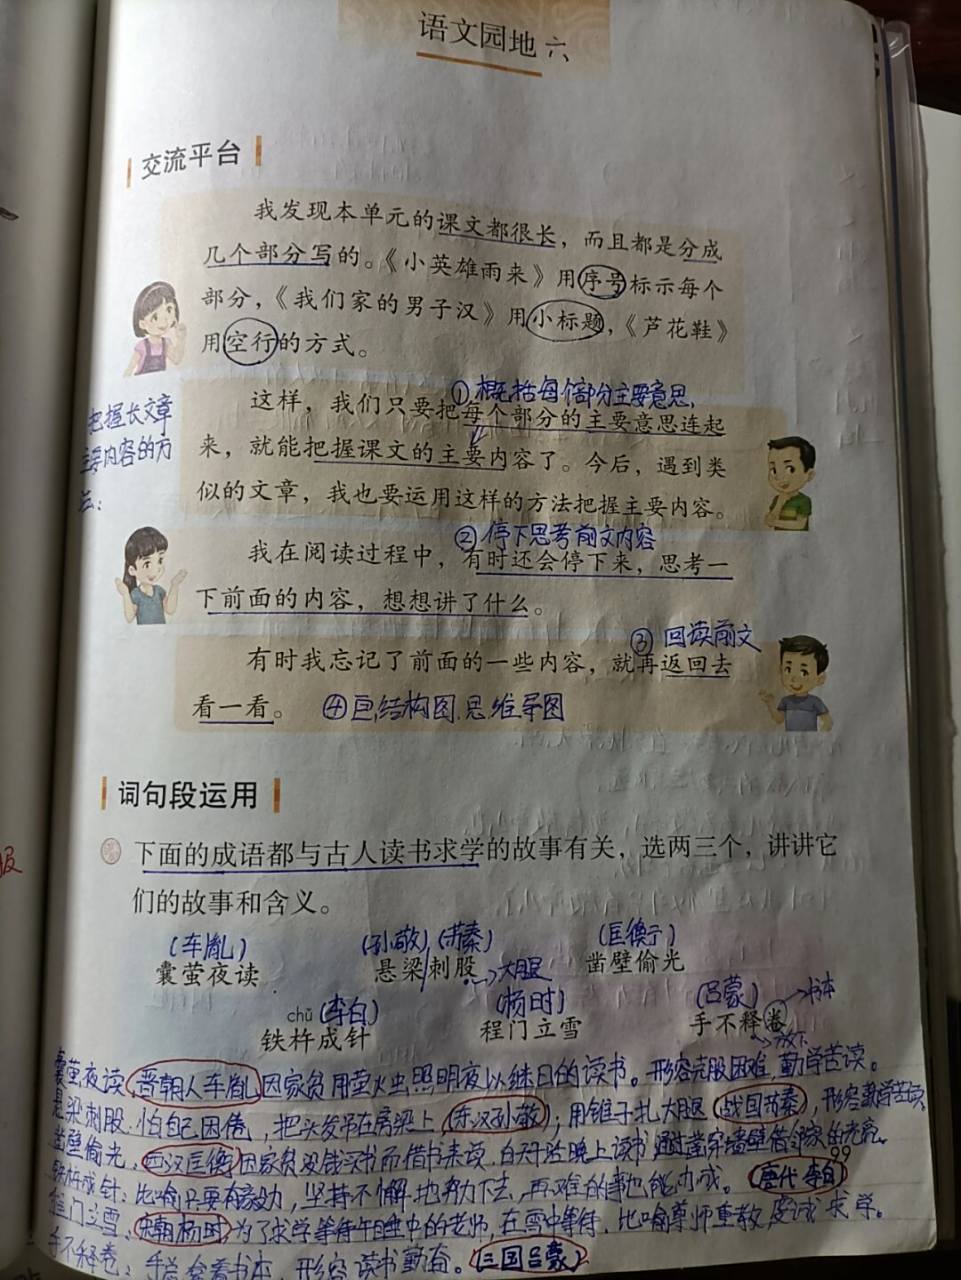 语文园地 六
交流平台
我发现本单元的课文都很长，而且都是分成
几个部分写的。《小英雄雨来》用序号标示每个
部分，《我们家的男子汉》用小标题，《芦花鞋》
用空行的方式。
①概括每个部分主要意思，
把握长文章
主要内容的方
法：
这样，我们只要把每个部分的主要意思连起
来，就能把握课文的主要内容了。今后，遇到类
似的文章，我也要运用这样的方法把握主要内容。
②停下思考前文内容
我在阅读过程中，有时还会停下来，思考一
下前面的内容，想想讲了什么。
③回读前文
有时我忘记了前面的一些内容，就再返回去
看一看。 ④画结构图.思维导图
词句段运用
下面的成语都与古人读书求学的故事有关，选两三个，讲讲它
们的故事和含义。
(车胤) (孙敬) (苏秦) (匡衡)
囊萤夜读 悬梁刺股 →大腿 凿壁偷光
chǔ (李白) (杨时) (吕蒙) →书本
铁杵成针 程门立雪 手不释卷
→放下
囊萤夜读，晋朝人车胤，因家贫用萤火虫照明夜以继日的读书。形容克服困难，勤学苦读。
悬梁刺股.怕自己困倦，把头发吊在房梁上(东汉孙敬)；用锥子扎大腿(战国苏秦)，形容勤学苦读
凿壁偷光，西汉匡衡因家贫没钱买书而借书来读，白天 晚上读书 通过凿穿墙壁借邻家的光亮。
铁杵成针：比喻只要有毅力，坚持不懈地努力下去，再难的事也能办成。(唐代李白)
程门立雪，宋朝杨时，为了求学等待午睡中的老师，在雪中等待，比喻尊师重教 虔诚求学。
手不释卷：手总拿着书本，形容读书勤奋。(三国吕蒙)